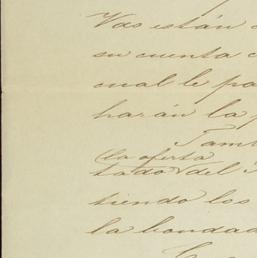 Vds están
su cuenta
cual le
harán la
la oferta
tado del
tiendo los
la bondad